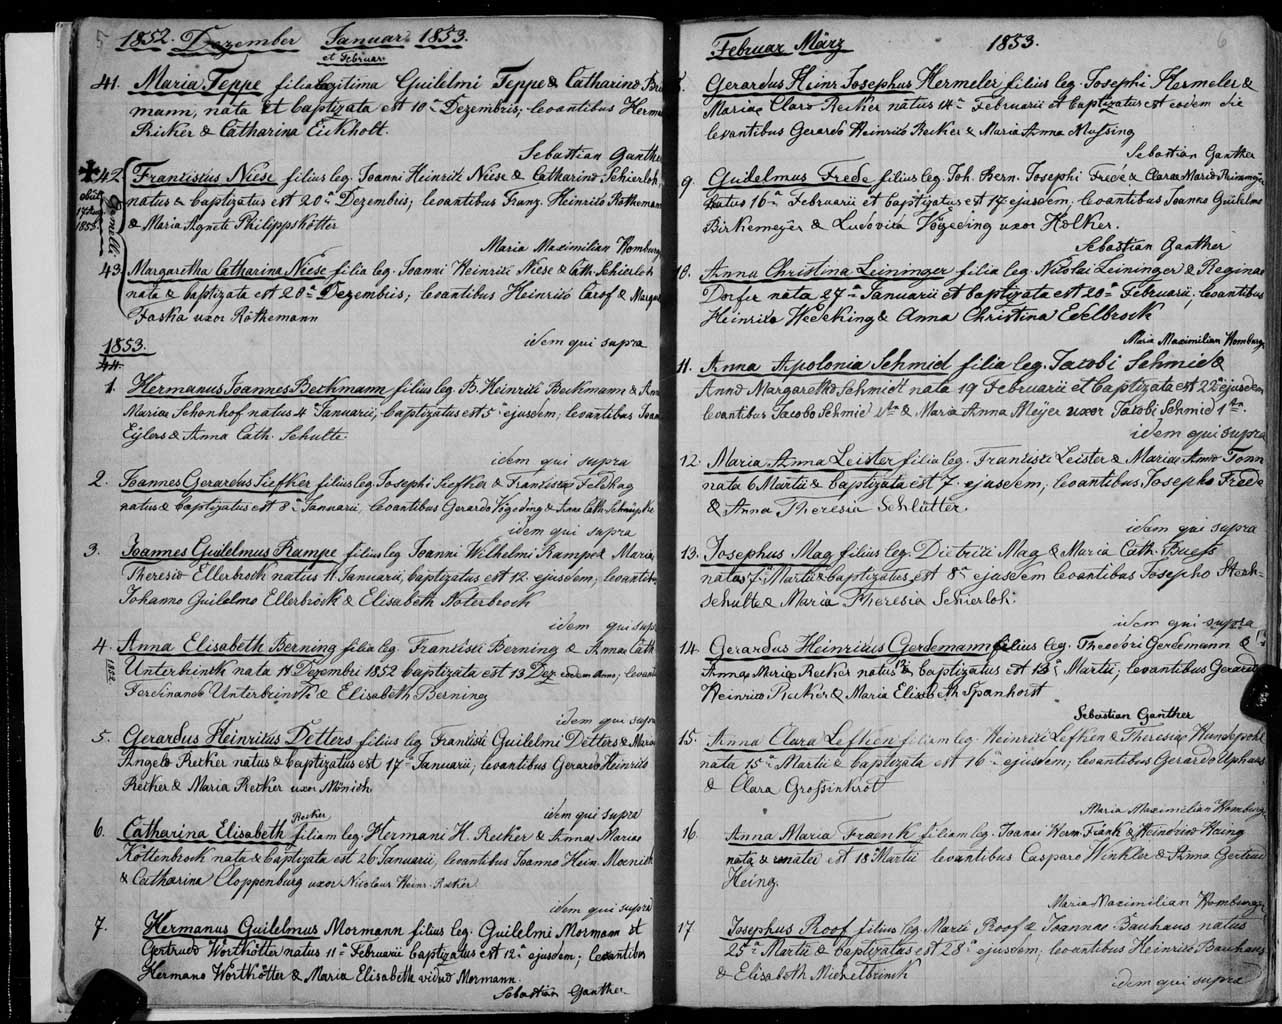 5 1852. Dezember Januar 1853.
et Februar
41. Maria Teppe filia legitima Guilelmi Teppe & Catharina
mann, nata et baptizata est 10a Dezembris; levantibus Herm
Recker & Catharina Eickholt.
Sebastian Ganther
42. Franziscus Niese filius leg. Joanni Heinrici Niese & Catharina Schierloh,
natus & baptizatus est 20a Dezembris; levantibus Franz Heinrico Rothemann
& Maria Agnete Philippskötter
obiit
1853.
Gemelli
Maria Maximilian Homburg
43. Margaretha Catharina Niese filia leg. Joanni Heinrici Niese & Cath. Schierloh
nata & baptizata est 20a Dezembris; levantibus Heinrico Carof & Marga
Faska uxor Rothemann
idem qui supra
1853.
44.
1. Hermanus Joannes Beckmann filius leg. B. Heinrici Beckmann & Ann
Maria Schonhof natus 4 Januarii, baptizatus est 5 ejusdem, levantibus Joan
Eylers & Anna Cath. Schulte.
idem qui supra
2. Joannes Gerardus Siefker filius leg. Josephi Siefker & Franzisca Feldhag
natus & baptizatus est 8a Januarii, levantibus Gerardo Vögeding & Anna Cath.
idem qui supra
3. Joannes Guilelmus Rampe filius leg Joanni Wilhelmi Rampe & Maria
Theresia Ellerbrock natus 11 Januarii, baptizatus est 12 ejusdem; levantib
Johanno Guilelmo Ellerbrock & Elisabeth Noterbrock
idem qui supra
4. Anna Elisabeth Berning filia leg. Franzisci Berning & Anna Cath
1852
Unterbrinck nata 11 Dezembri 1852 baptizata est 13 Dez eodem anno; levant
Ferdinando Unterbrinck & Elisabeth Berning
idem qui supra
5. Gerardus Heinricus Detters filius leg Franzisci Guilelmi Detters & Maria
Angela Recker natus & baptizatus est 17a Januarii; levantibus Gerardo Heinrico
Recker & Maria Recker uxor Mönich.
idem qui supra
Recker
6. Catharina Elisabeth filiam leg. Hermani H. Recker & Anna Maria
Kottenbrock nata & baptizata est 26 Januarii, levantibus Joanno Hein. Moenich
& Catharina Cloppenburg uxor Nicolaus Heinr. Recker
idem qui supra
7. Hermanus Guilelmus Mormann filius leg. Guilelmi Mormann et
Gertrud Worthötter natus 11a Februarii baptizatus est 12a ejusdem; levantibus
Hermano Worthkötter & Maria Elisabeth vidua Mormann.
Sebastian Ganther
Februar März 1853. 6
Gerardus Heinr Josephus Hermeler filius leg. Josephi Hermeler &
Maria Clara Recker natus 14a Februarii et baptizatus est eodem die
levantibus Gerardo Heinrico Recker & Maria Anna Mussing
Sebastian Ganther
9. Guilelmus Frede filius leg. Joh. Bern. Josephi Frede & Clara Maria
natus 16a Februarii et baptizatus est 17 ejusdem; levantibus Joanno Guilelmo
Birkemeyer & Ludovica Vögeding uxor Holker.
Sebastian Ganther
10. Anna Christina Leininger filia leg. Nicolai Leininger & Regina
Dorfer nata 27a Januarii et baptizata est 20a Februarii; levantibus
Heinrico Wecking & Anna Christina Edelbrock
Maria Maximilian Homburg
11. Anna Apolonia Schmid filia leg. Jacobi Schmid &
Anna Margaretha Schmidt nata 19 Februarii et baptizata est 22a ejusdem
levantibus Jacobo Schmid & Maria Anna Meÿer uxor Jacobi Schmid
idem qui supra
12. Maria Anna Leister filia leg. Franzisci Leister & Maria Anna Tonn
nata 6 Martii & baptizata est 7 ejusdem; levantibus Josepho Frede
& Anna Theresia Schlütter.
idem qui supra
13. Josephus Mag filius leg. Dietrici Mag & Maria Cath. Buess
natus 7a Martii & baptizatus est 8a ejusdem levantibus Josepho
schulte & Maria Theresia Schierloh.
idem qui supra
14. Gerardus Heinricus Gerdemann filius leg. Theodori Gerdemann &
Anna Maria Recker natus 12a & baptizatus est 13a Martii; levantibus Gerardo
Heinrico Recker & Maria Elisabeth Spanhorst
Sebastian Ganther
15. Anna Clara Lefken filiam leg. Heinrici Lefken & Theresia Hundepohl
nata 15a Martii & baptizata est 16a ejusdem; levantibus Gerardo Uphaus
& Clara Grossinkrot
Maria Maximilian Homburg
16. Anna Maria Fraenk filiam leg. Joanni Herm. Frank & Heindrica Haing
nata & renata est 18a Martii levantibus Casparo Winkler & Anna Gertrud
Heing.
Maria Maximilian Homburg
17 Josephus Roof filius leg Marti Roof & Joanna Bauhaus natus
25a Martii & baptizatus est 28a ejusdem; levantibus Heinrico Bauhaus
& Elisabeth Michelbrink
idem qui supra